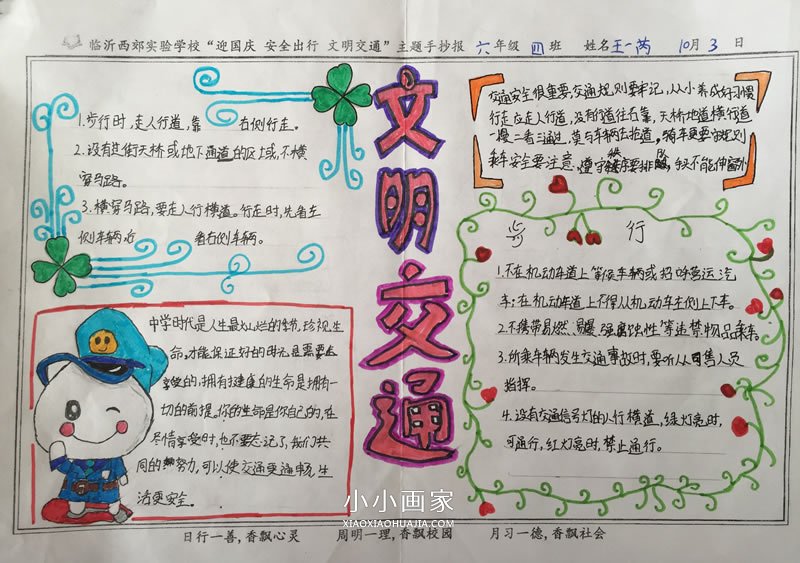 临沂西郊实验学校“迎国庆 安全出行 文明交通”主题手抄报 六年级 四 班 姓名 王一芮 10月 3 日
1.步行时,走人行道,靠 右侧行走。
2.没有其街天桥或地下通道的区域,不横
穿马路。
3.横穿马路,要走人行横道。行走时,先看左
侧车辆后 看右侧车辆。
文明交通
交通安全很重要,交通规则要牢记,从小养成好习惯
行走应走人行道,没有行道往右靠,天桥地道横行道
一慢二看三通过,莫与车辆去抢道。骑车更要守规则
乘车安全要注意,遵守秩序要排队,手头不能伸窗外
步 行
1.不在机动车道上等候车辆或招呼营运汽
车;在机动车道上不得从机动车左侧上下车。
2.不携带易燃、易爆、强腐蚀性等违禁物品乘车
3.所乘车辆发生交通事故时,要听从司售人员
指挥。
4.没有交通信号灯的人行横道,绿灯亮时,
可通行,红灯亮时,禁止通行。
中学时代是人生最灿烂的季节,珍视生
命,才能保证好的时光是需要
的,拥有健康的生命是拥有一
切的前提,你的生命是你自己的,在
尽情享受时,也不要忘记了,我们共
同的努力,可以使交通更通畅,生
活更安全。
小小画家
XIAOXIAOHUAJIA.COM
日行一善,香飘心灵 周明一理,香飘校园 月习一德,香飘社会